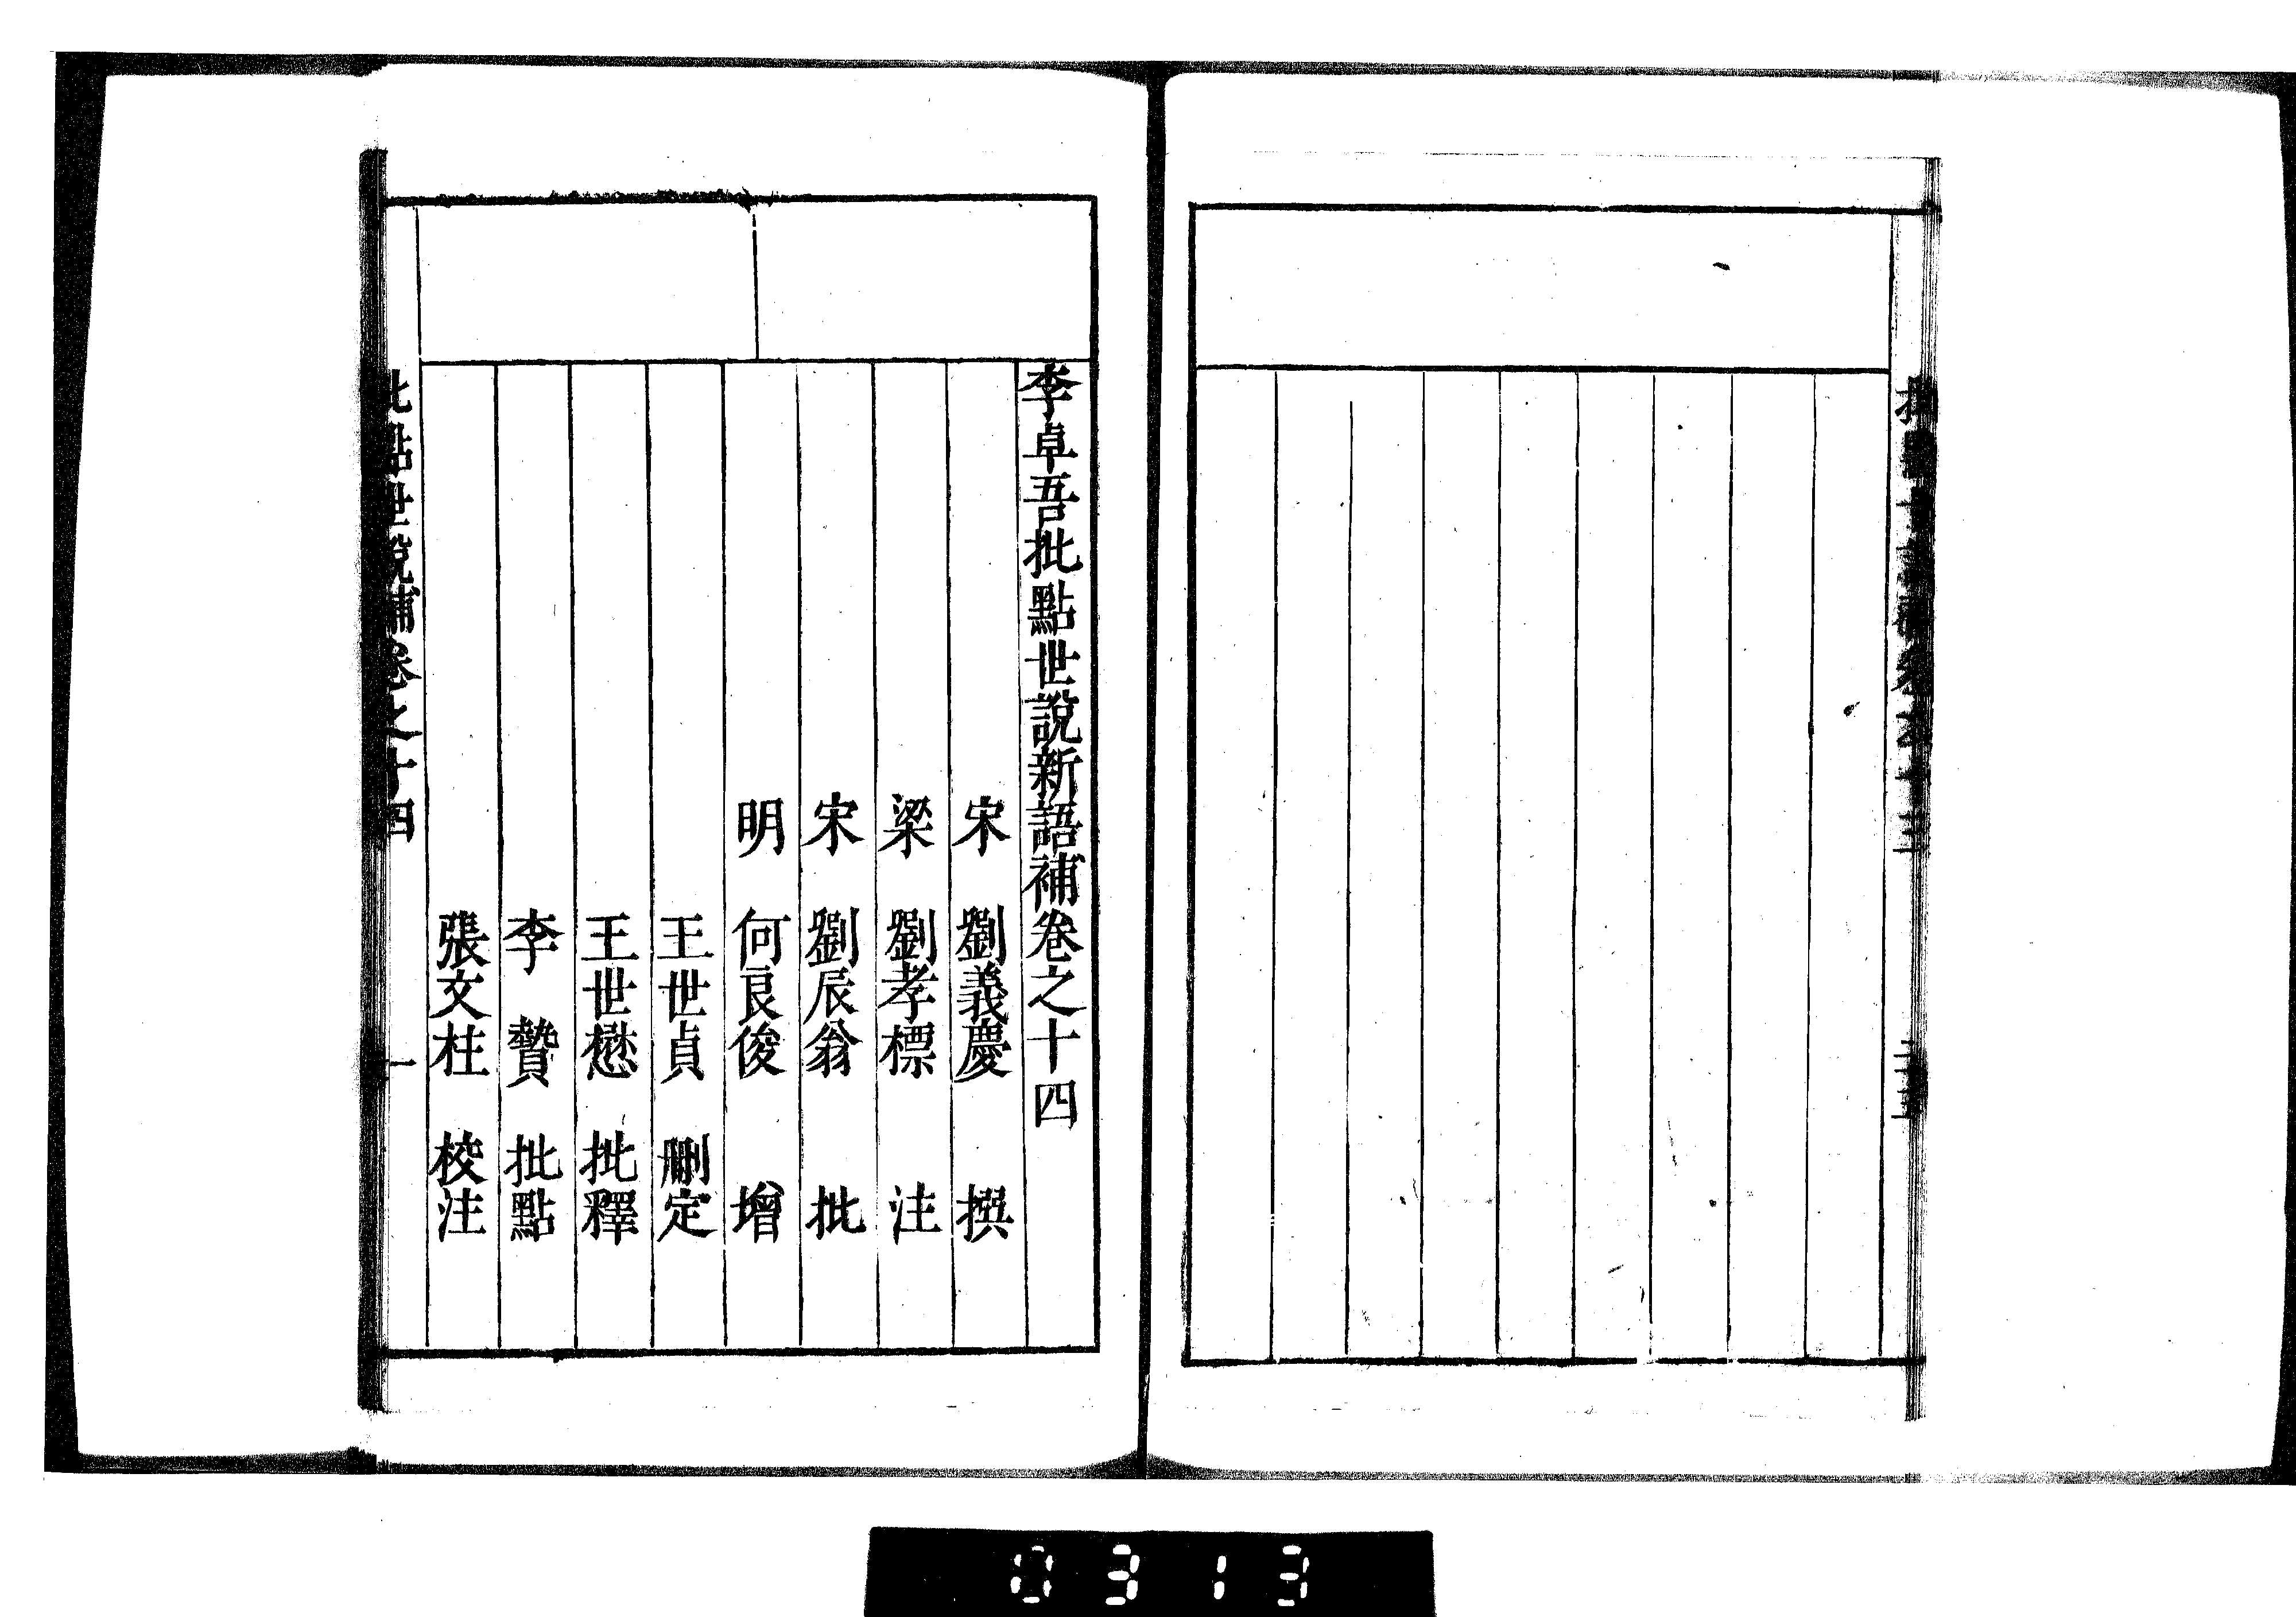 李卓吾批點世說新語補卷之十四
宋　劉義慶　撰
梁　劉孝標　注
宋　劉辰翁　批
明　何良俊　增
王世貞　刪定
王世懋　批釋
李　贄　批點
張文柱　校注
批點世說補卷之十四　一
0313